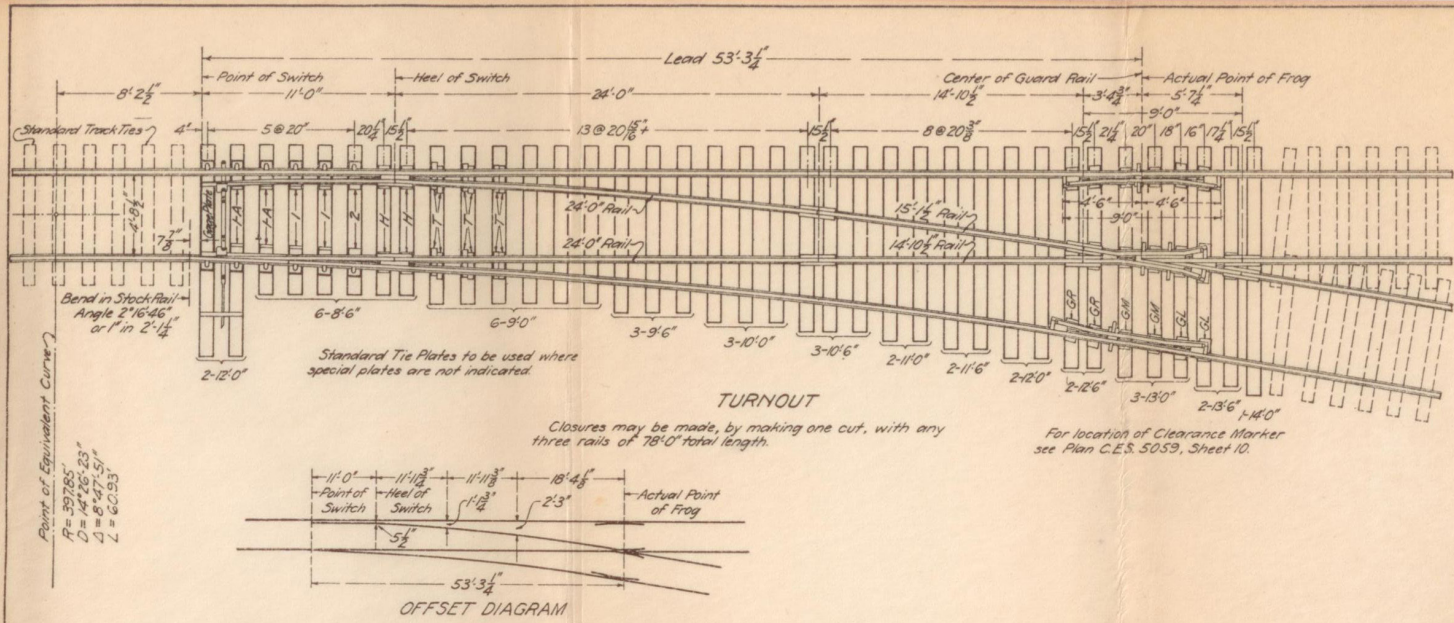 Lead 53'-3 1/4"
Point of Switch
Heel of Switch
Center of Guard Rail
Actual Point of Frog
8'-2 1/2"
11'-0"
24'-0"
14'-10 1/2"
3'-4 3/4"
5'-7 1/4"
9'-0"
Standard Track Ties
4"
5 @ 20"
20 1/4"
15 1/2"
13 @ 20 15/16"+
15 1/2"
8 @ 20 3/8"
15 1/2"
21 1/4"
20"
18"
16"
17 1/4"
15 1/2"
4'-8 1/2"
7 7/8"
Gage Plate
1-A
1-A
1
1
2
H
H
T
T
T
24'-0" Rail
15'-1 1/2" Rail
24'-0" Rail
14'-10 1/2" Rail
4'-6"
4'-6"
9'-0"
GR
GR
GM
GM
GL
GL
Bend in Stock Rail
Angle 2°16'-46"
or 1" in 2'-1 1/4"
2-12'-0"
6-8'-6"
6-9'-0"
3-9'-6"
3-10'-0"
3-10'-6"
2-11'-0"
2-11'-6"
2-12'-0"
2-12'-6"
3-13'-0"
2-13'-6"
1-14'-0"
Standard Tie Plates to be used where
special plates are not indicated.
TURNOUT
Closures may be made, by making one cut, with any
three rails of 78'-0" total length.
For location of Clearance Marker
see Plan C.E.S. 5059, Sheet 10.
Point of Equivalent Curve
R = 397.85'
D = 14°26'-23"
Δ = 8°47'-51"
L = 60.93'
11'-0"
11'-11 3/4"
18'-4 1/8"
Point of
Switch
Heel of
Switch
1'-1 3/4"
2'-3"
Actual Point
of Frog
5 1/2"
53'-3 1/4"
OFFSET DIAGRAM